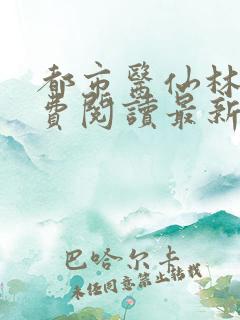 都市醫仙林
費閱讀最新
巴哈尔卡
未经同意禁止转载